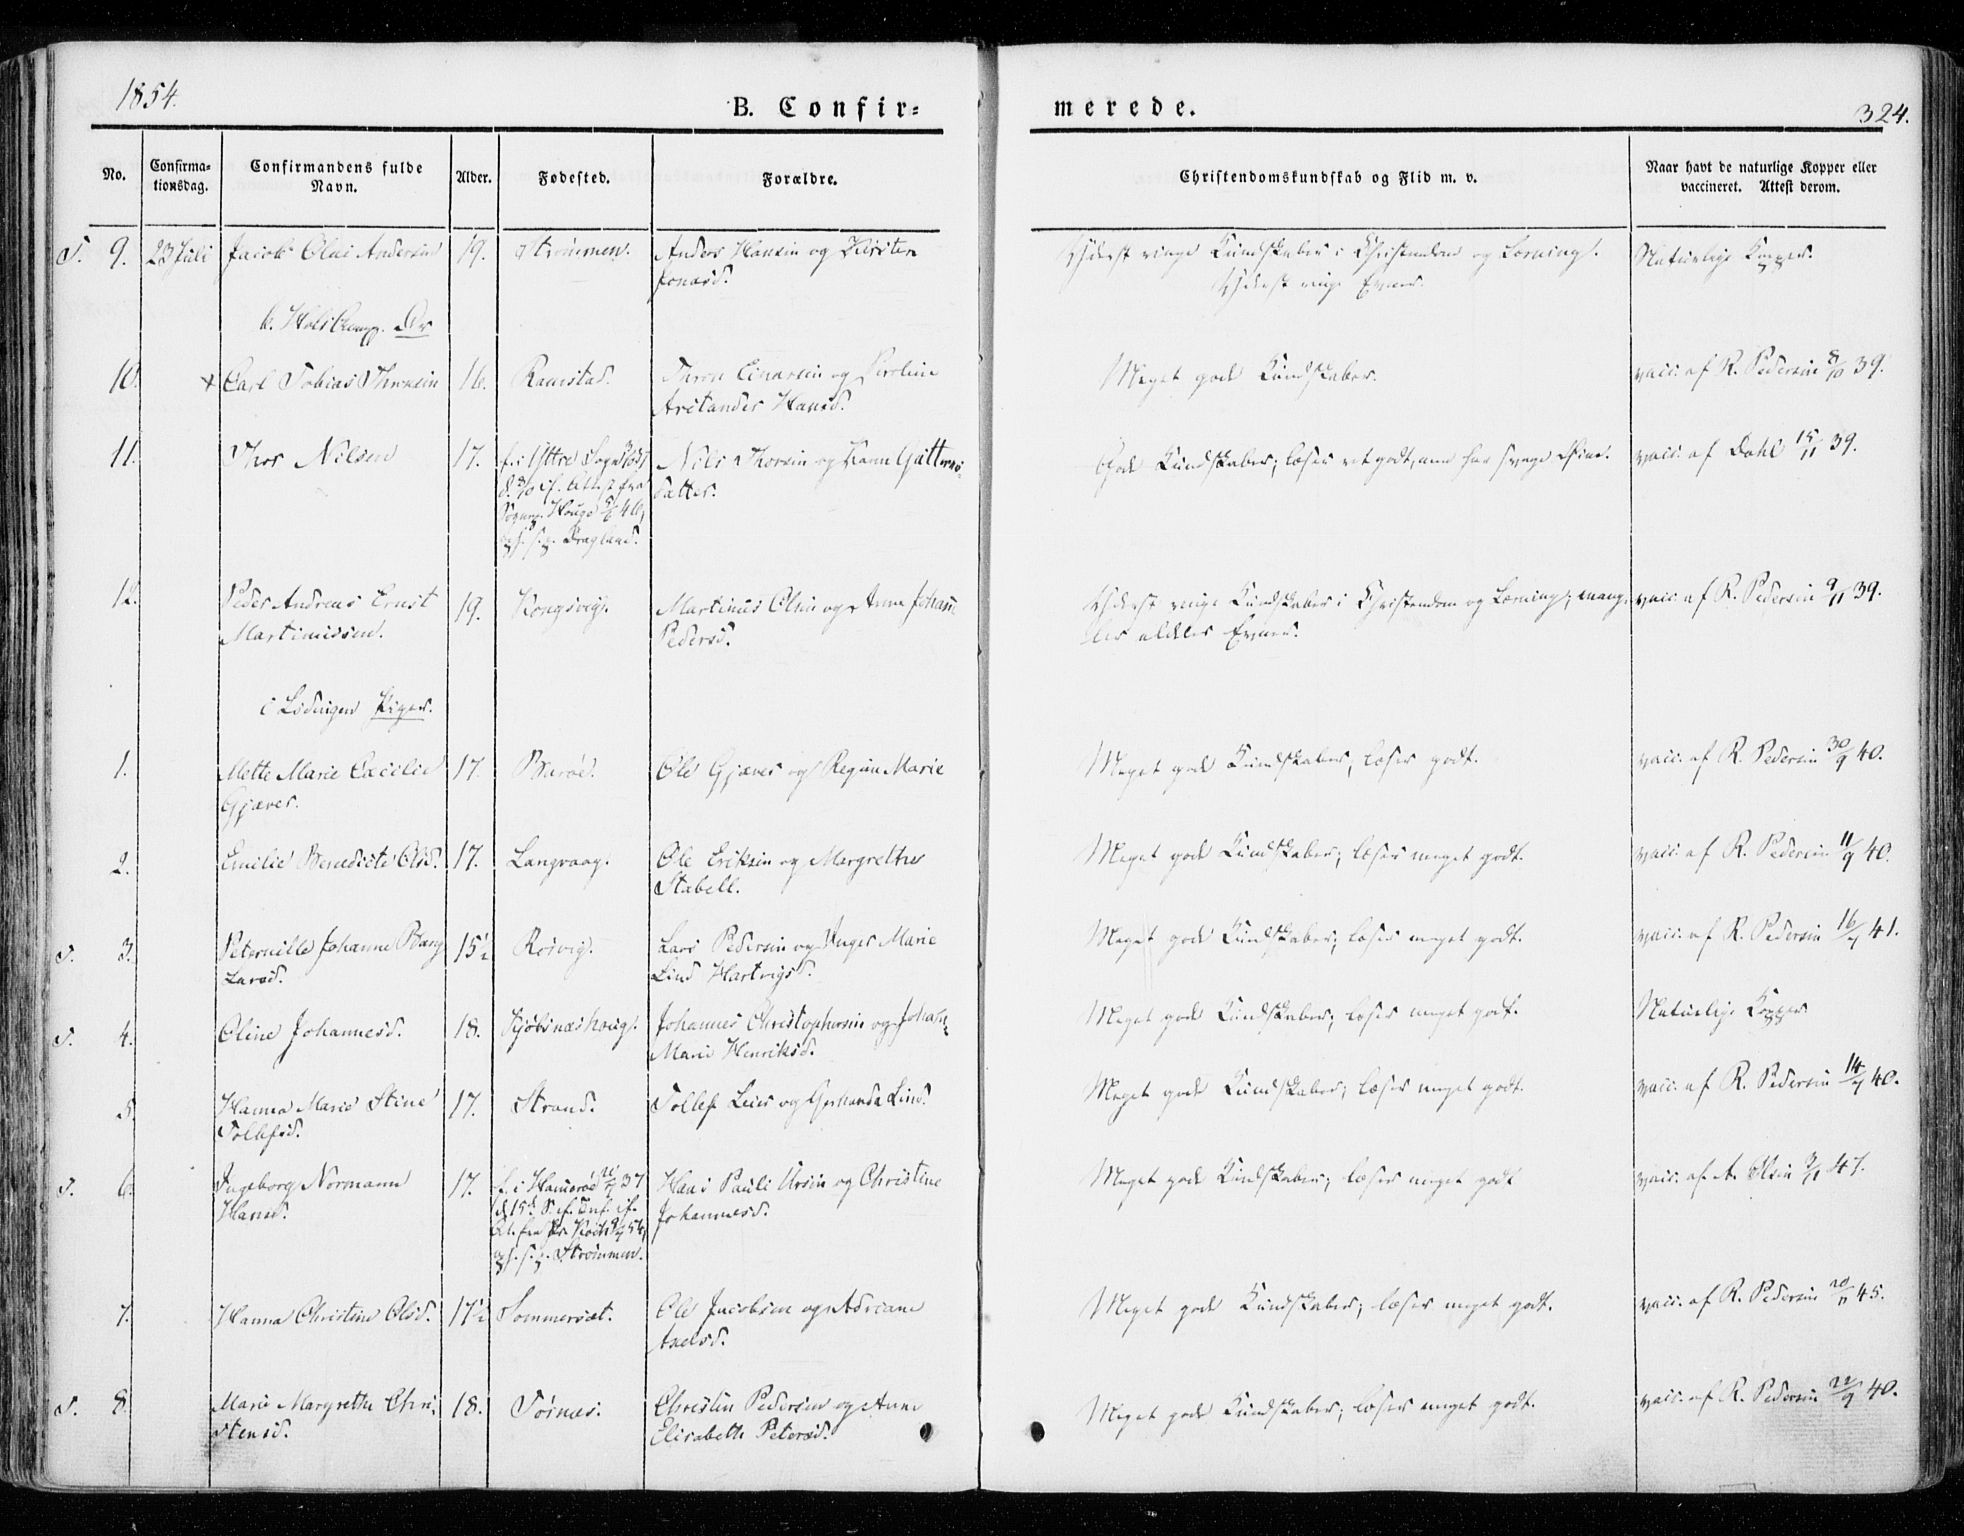 1854.
B. Confir=
merede.
324.
No.
Confirma-
tionsdag.
Confirmandens fulde
Navn.
Alder.
Fødested.
Forældre.
Christendomskundskab og Flid m. v.
Naar havt de naturlige Kopper eller
vaccineret. Attest derom.
9. 23 Juli Jacob Olai Andersen 19. Strømmen. Anders Hansen og Kirsten
Jonasd.
Yderst ringe Kundskaber i Christendom og Læsning.
Yderst ringe Evner.
Naturlige Kopper.
10. Carl Tobias Thronsen 16. Ramstad. Thron Einarsen og
Hansd.
Meget gode Kundskaber.
vacc. af R. Pedersen 8/10 39.
11. Thor Nilsen 17. Nils Thorsen og
datter.
Dragland.
Gode Kundskaber; læser ret godt, men har svage Øine.
vacc. af Dahl 15/11 39.
12. Peder Andreas Ernst
Martinussen. 19. Kongsvig. Martinus Olsen og Anne Johanne
Pedersd.
Yderst ringe Kundskaber i Christendom og Læsning; mang-
ler aldeles Evner.
vacc. af R. Pedersen 9/11 39.
i Lødingen Piger.
1. Mette Marie Cæcilie
Gjæver. 17. Barøe. Ole Gjæver og Regine Marie
Meget gode Kundskaber; læser godt.
vacc. af R. Pedersen 30/9 40.
2. Emilie Benedicte Olsd. 17. Langvaag. Ole Eriksen og Margrethe
Stabell.
Meget gode Kundskaber; læser meget godt.
vacc. af R. Pedersen 11/9 40.
3. Peternille Johanne Bang
Larsd. 15½ Rørvig. Lars Pedersen og Inger Marie
Lind Hartvigsd.
Meget gode Kundskaber; læser meget godt.
vacc. af R. Pedersen 41.
4. Oline Johannesd. 18. Kjøbsnæshoug. Johannes Christophersen og Johan-
Marie Henriksd.
Meget gode Kundskaber; læser meget godt.
Naturlige Kopper
5. Hanna Marie Stine
Tollefsd. 17. Strand. Tollef og Lind.
Meget gode Kundskaber; læser meget godt.
vacc. af R. Pedersen 40.
6. Ingeborg Normann
Hansd. 17. f. i Hamerøe 37
Strømmen.
Hans Pauli Ursin og Christine
Johannesd.
Meget gode Kundskaber; læser meget godt
vacc. af A. Olsen 47.
7. Hanna Christine Olsd. 17½ Sommersæt. Ole Jacobsen og Adriane
Axelsd.
Meget gode Kundskaber; læser meget godt.
vacc. af R. Pedersen 20/11 45.
8. Marie Margrethe Chri-
stensd. 18. Tornæs. Christen Pedersen og Anne
Elisabeth Petersd.
Meget gode Kundskaber; læser meget godt.
vacc. af R. Pedersen 22/9 40.